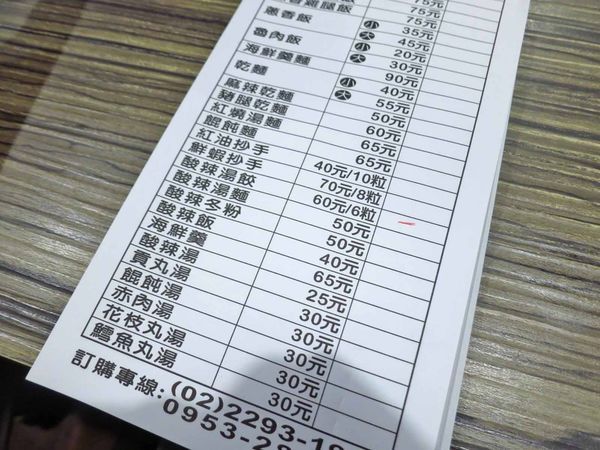 香雞腿飯 75元
75元
蔥香飯 小 35元
大 45元
魯肉飯 小 20元
大 30元
海鮮羹麵 90元
乾麵 小 40元
大 55元
麻辣乾麵 50元
豬腿乾麵 60元
紅燒湯麵 65元
餛飩麵 65元
紅油抄手 40元/10粒
鮮蝦抄手 70元/8粒
酸辣湯餃 60元/6粒
酸辣湯麵 50元
酸辣冬粉 50元
酸辣飯 40元
海鮮羹 65元
酸辣湯 25元
貢丸湯 30元
餛飩湯 30元
赤肉湯 30元
花枝丸湯 30元
鱈魚丸湯 30元
訂購專線:(02)2293-18
0953-28